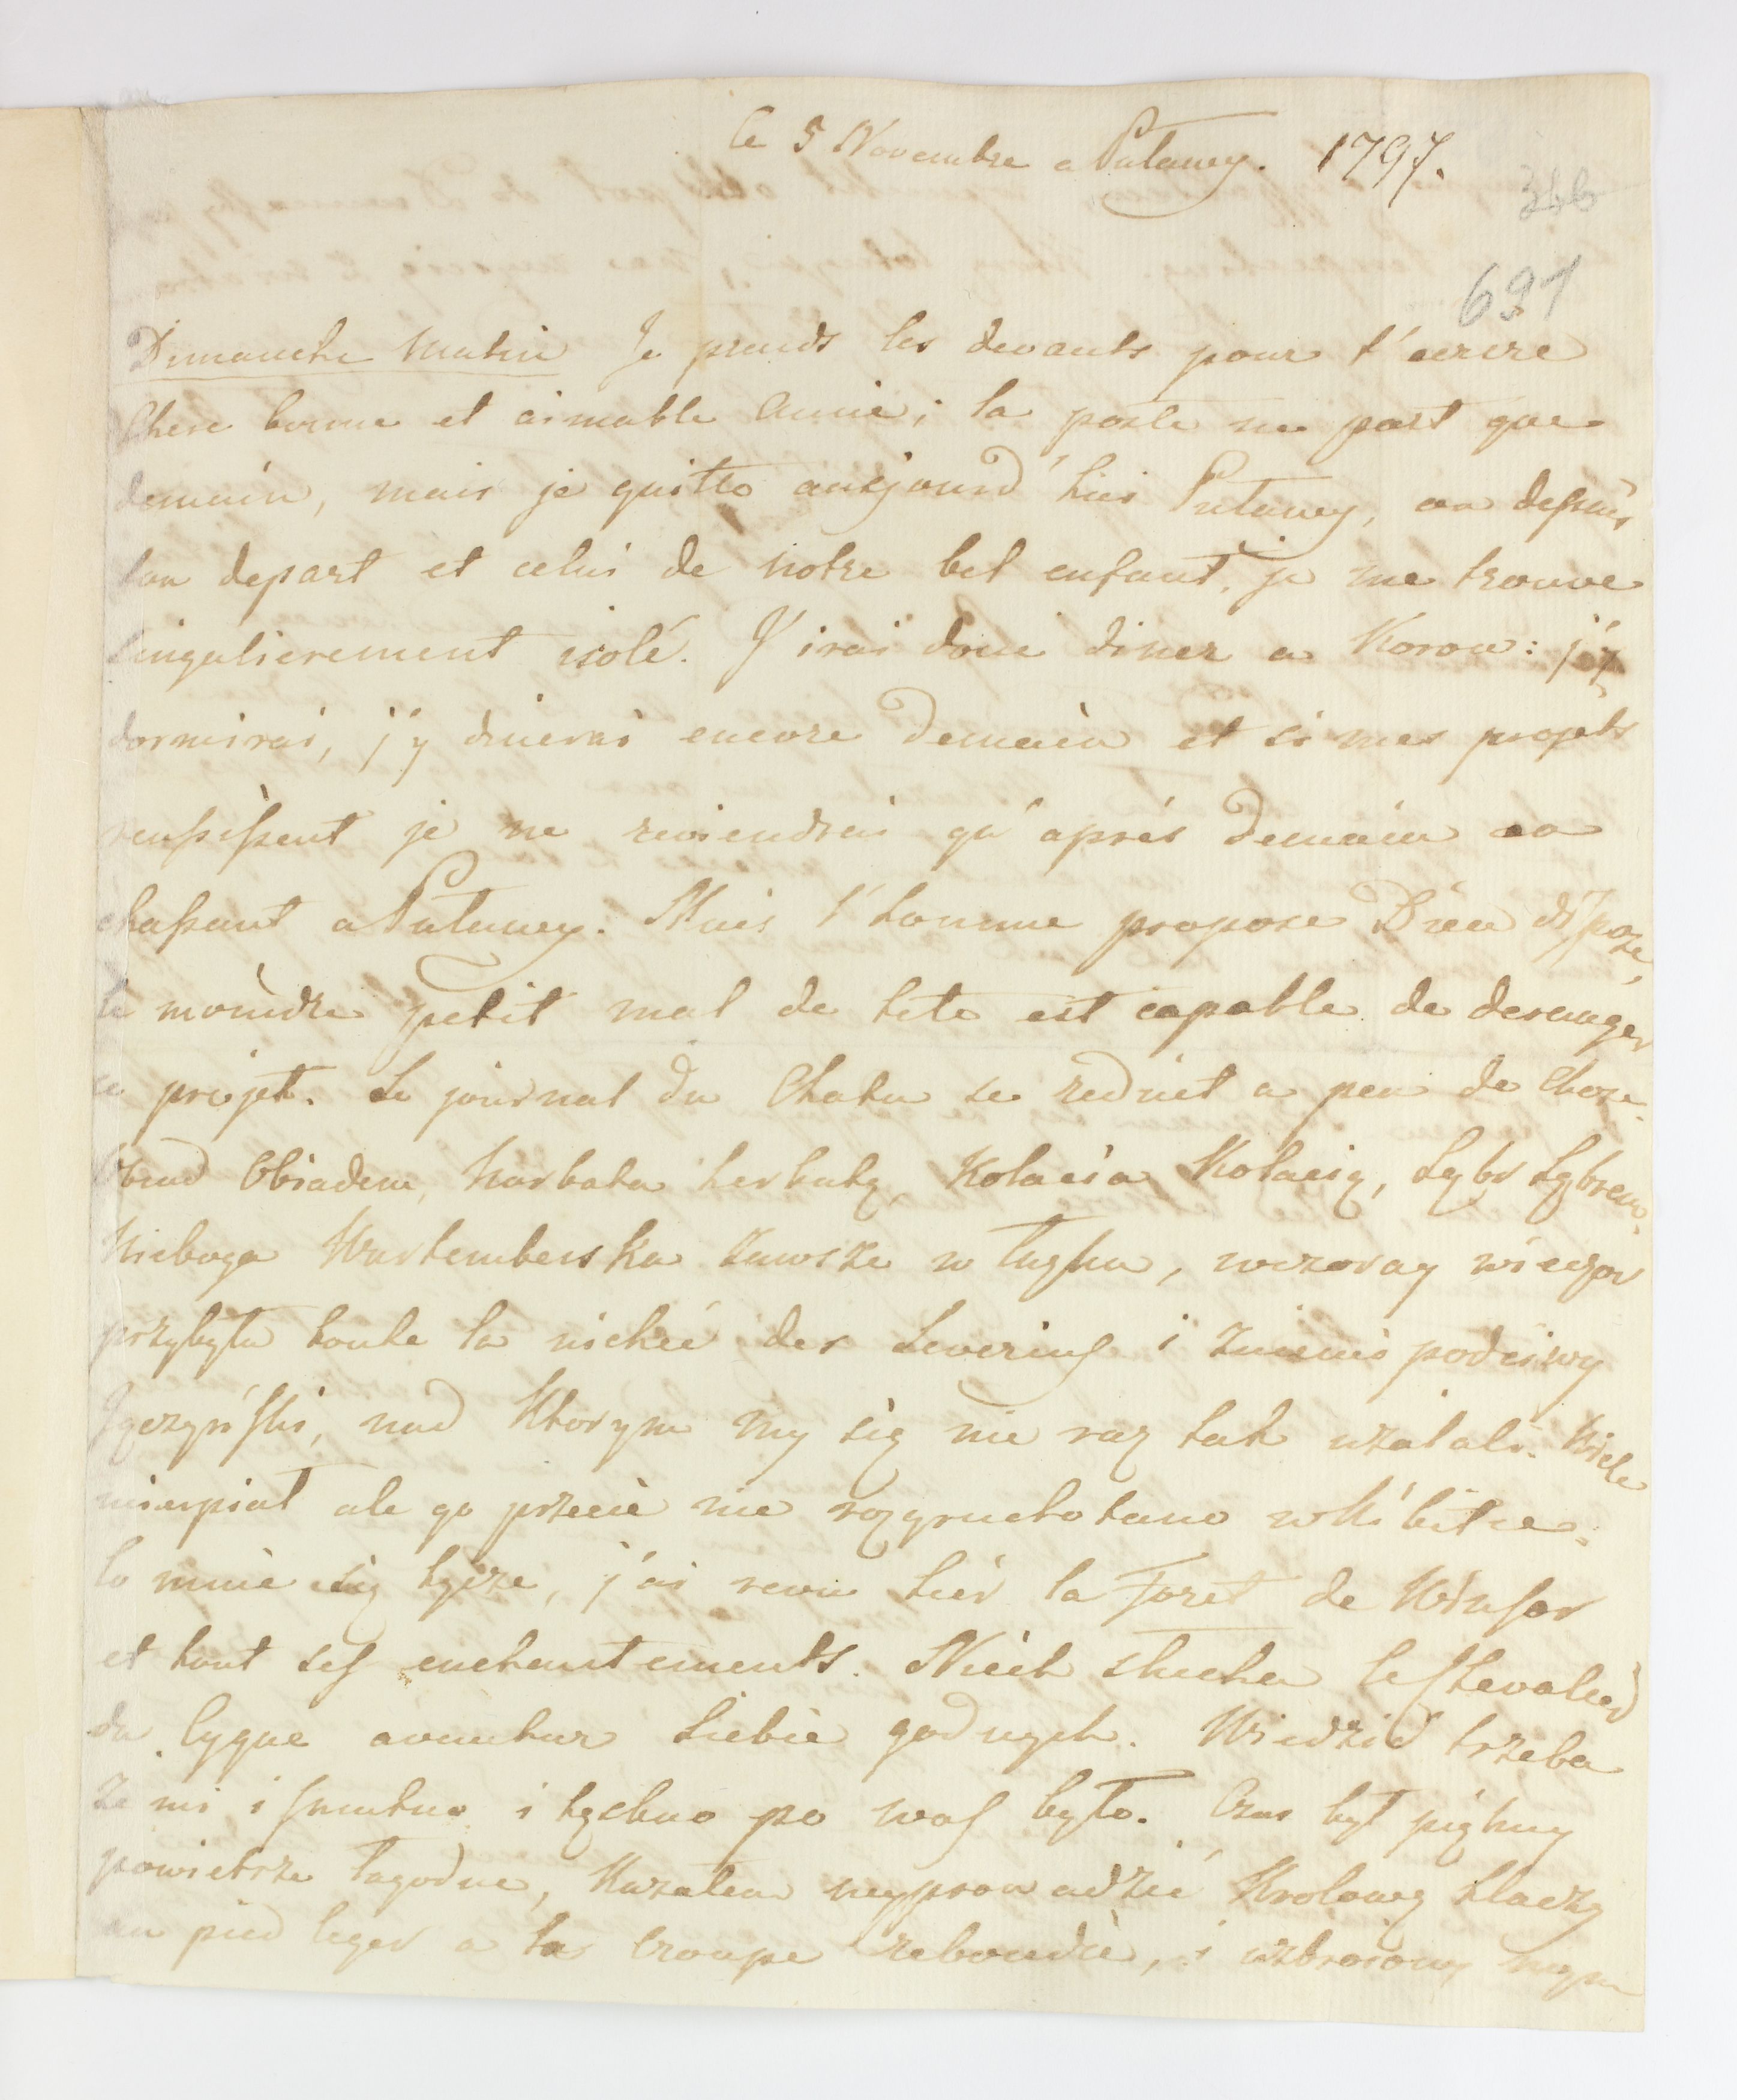 le 5 Novembre a Pulawy. 1797.
346
691
Dimanche Matin Je prends les devants pour t'ecrire
Chere bonne et aimable Amie; la poste ne part que
demain, mais je quitte aujourd'hui Pulawy, ou depuis
ton depart et celui de notre bel enfant, je me trouve
singulierement isolé. J'irai donc diner a Konow: j'y
dormirai, j'y dinerai encore Demain et si mes projets
reussissent je ne reviendrai qu'aprés Demain en
chassant a Pulawy. Mais l'homme propose Dieu dispose,
le moindre petit mal de tete est capable de deranger
ce projet. Le journal du Chateu se reduit a peu de Chose.
Obiad Obiadem, harbata herbatą, Kolacia Kolacią, Lybr Lybrem.
Nieboga Wurtemberska zawsze w łużku, wczoray wieczor
przybyła toute la nichée des Severins i zniemi podciwy
Jęczyński, nad Ktorym my się nie raz tak użalali. Wiele
ucierpiał ale go przecie nie rozgruchotano w Kibitce.
Co mnie się tycze, j'ai revu hier la Foret de Winsor
et tout ses enchantements. Niech słucha le Chevalier
du Cygne avantur Siebie godnych. Wiedzić trzeba
że mi i smutno i tęskno po was było. Czas był piękny
powietrze łagodne, Kazałem wyprowadzić Krolowę Klaczy
au pied leger a la croupe rebondie, i uzbroiony mym